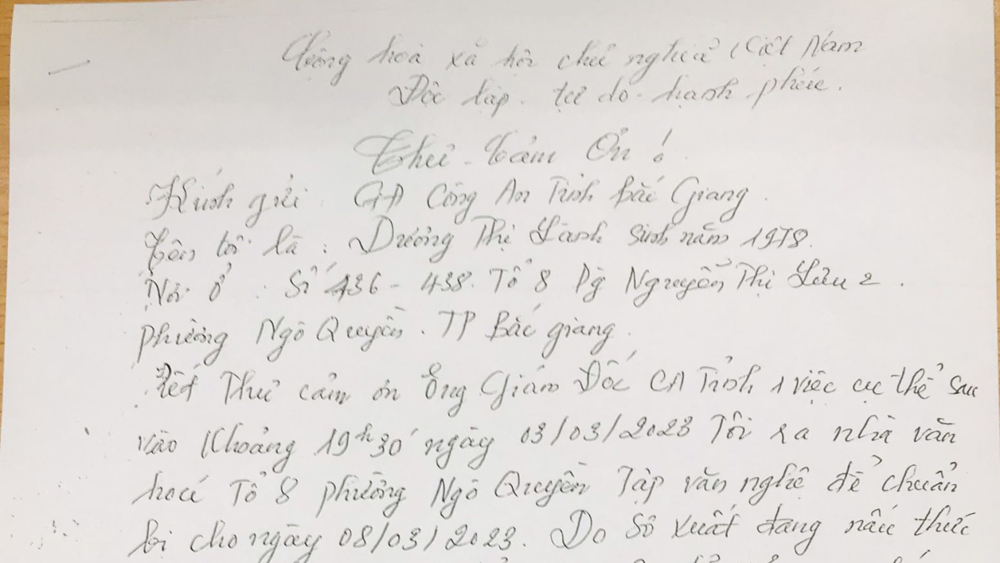 Cộng hoà xã hội chủ nghĩa Việt Nam
Độc lập - tự do - hạnh phúc.
Thư - Cảm Ơn !
Kính gửi : GĐ Công An Tỉnh Bắc Giang
Tên tôi là : Dương Thị Lành sinh năm 1978.
Nơi ở : Số 436 - 438. Tổ 8 Đg Nguyễn Thị Lưu 2.
phường Ngô Quyền. TP Bắc giang.
Viết Thư cảm ơn Ông Giám Đốc CA Tỉnh 1 việc cụ thể sau
vào Khoảng 19h30' ngày 03/03/2023 Tôi ra nhà văn
hoá Tổ 8 phường Ngô Quyền Tập văn nghệ để chuẩn
bị cho ngày 08/03/2023. Do Sơ xuất đang nấu thức